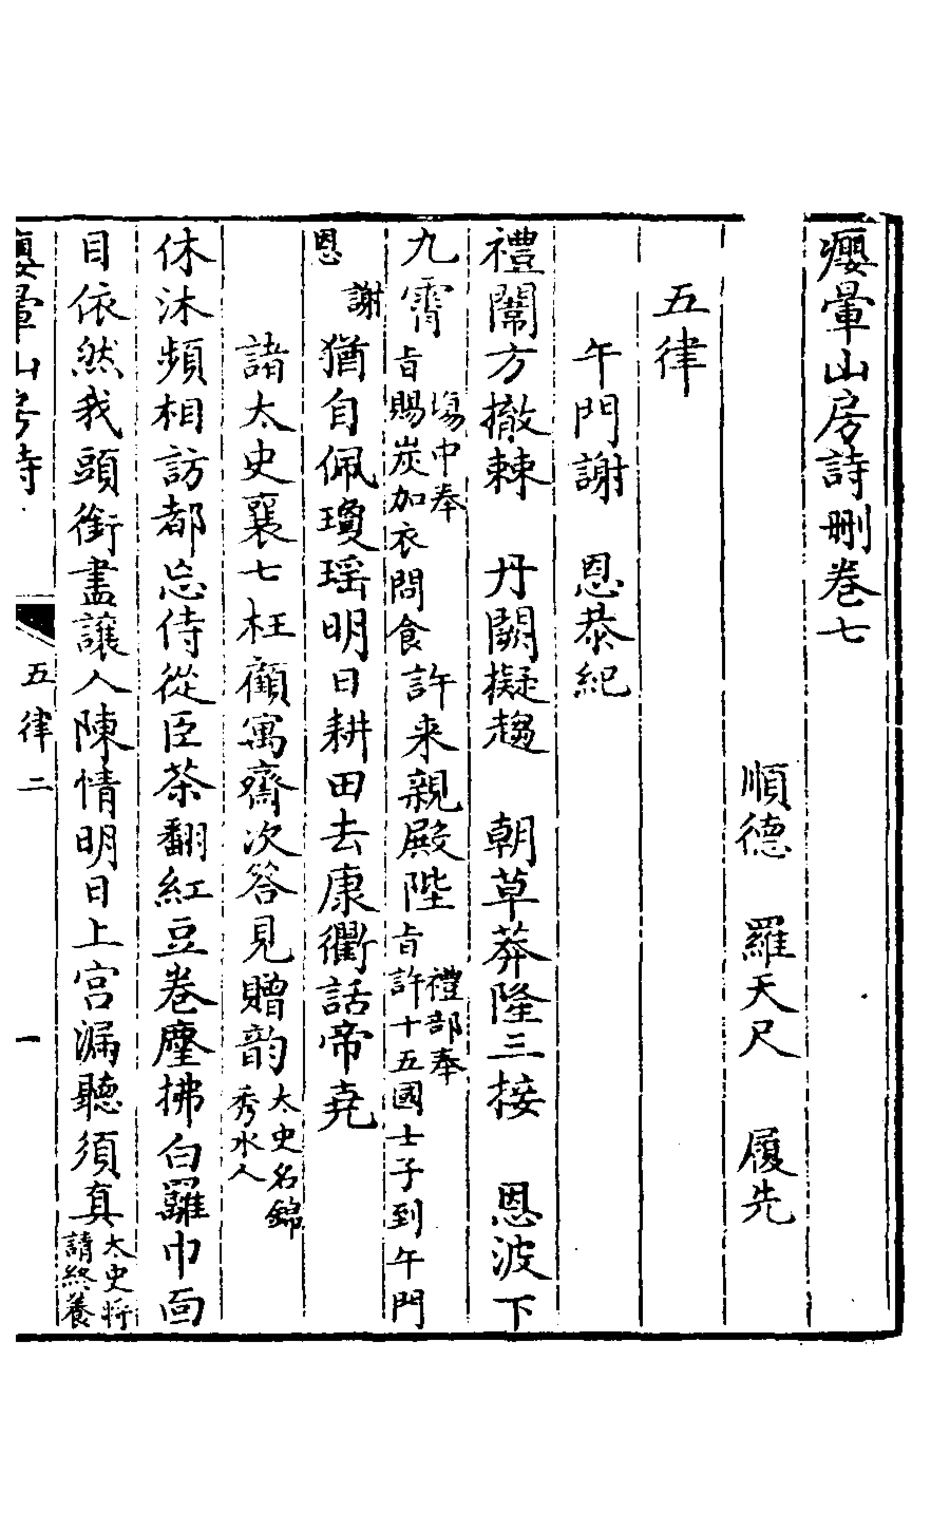 癭暈山房詩刪卷七
順德　羅天尺　履先
五律
午門謝　恩恭紀
禮闈方撤棘　丹闕擬趨　朝草莽隆三接　恩波下
九霄塲中奉旨賜炭加衣問食許来親殿陛禮部奉旨許十五國士子到午門
謝恩猶自佩瓊瑶明日耕田去康衢話帝堯
諸太史襄七枉顧寓齋次答見贈韵太史名錦秀水人
休沐頻相訪都忘侍從臣茶翻紅豆卷麈拂白羅巾面
目依然我頭銜盡讓人陳情明日上宮漏聽須真太史将請終養
癭暈山房詩　五律二　一